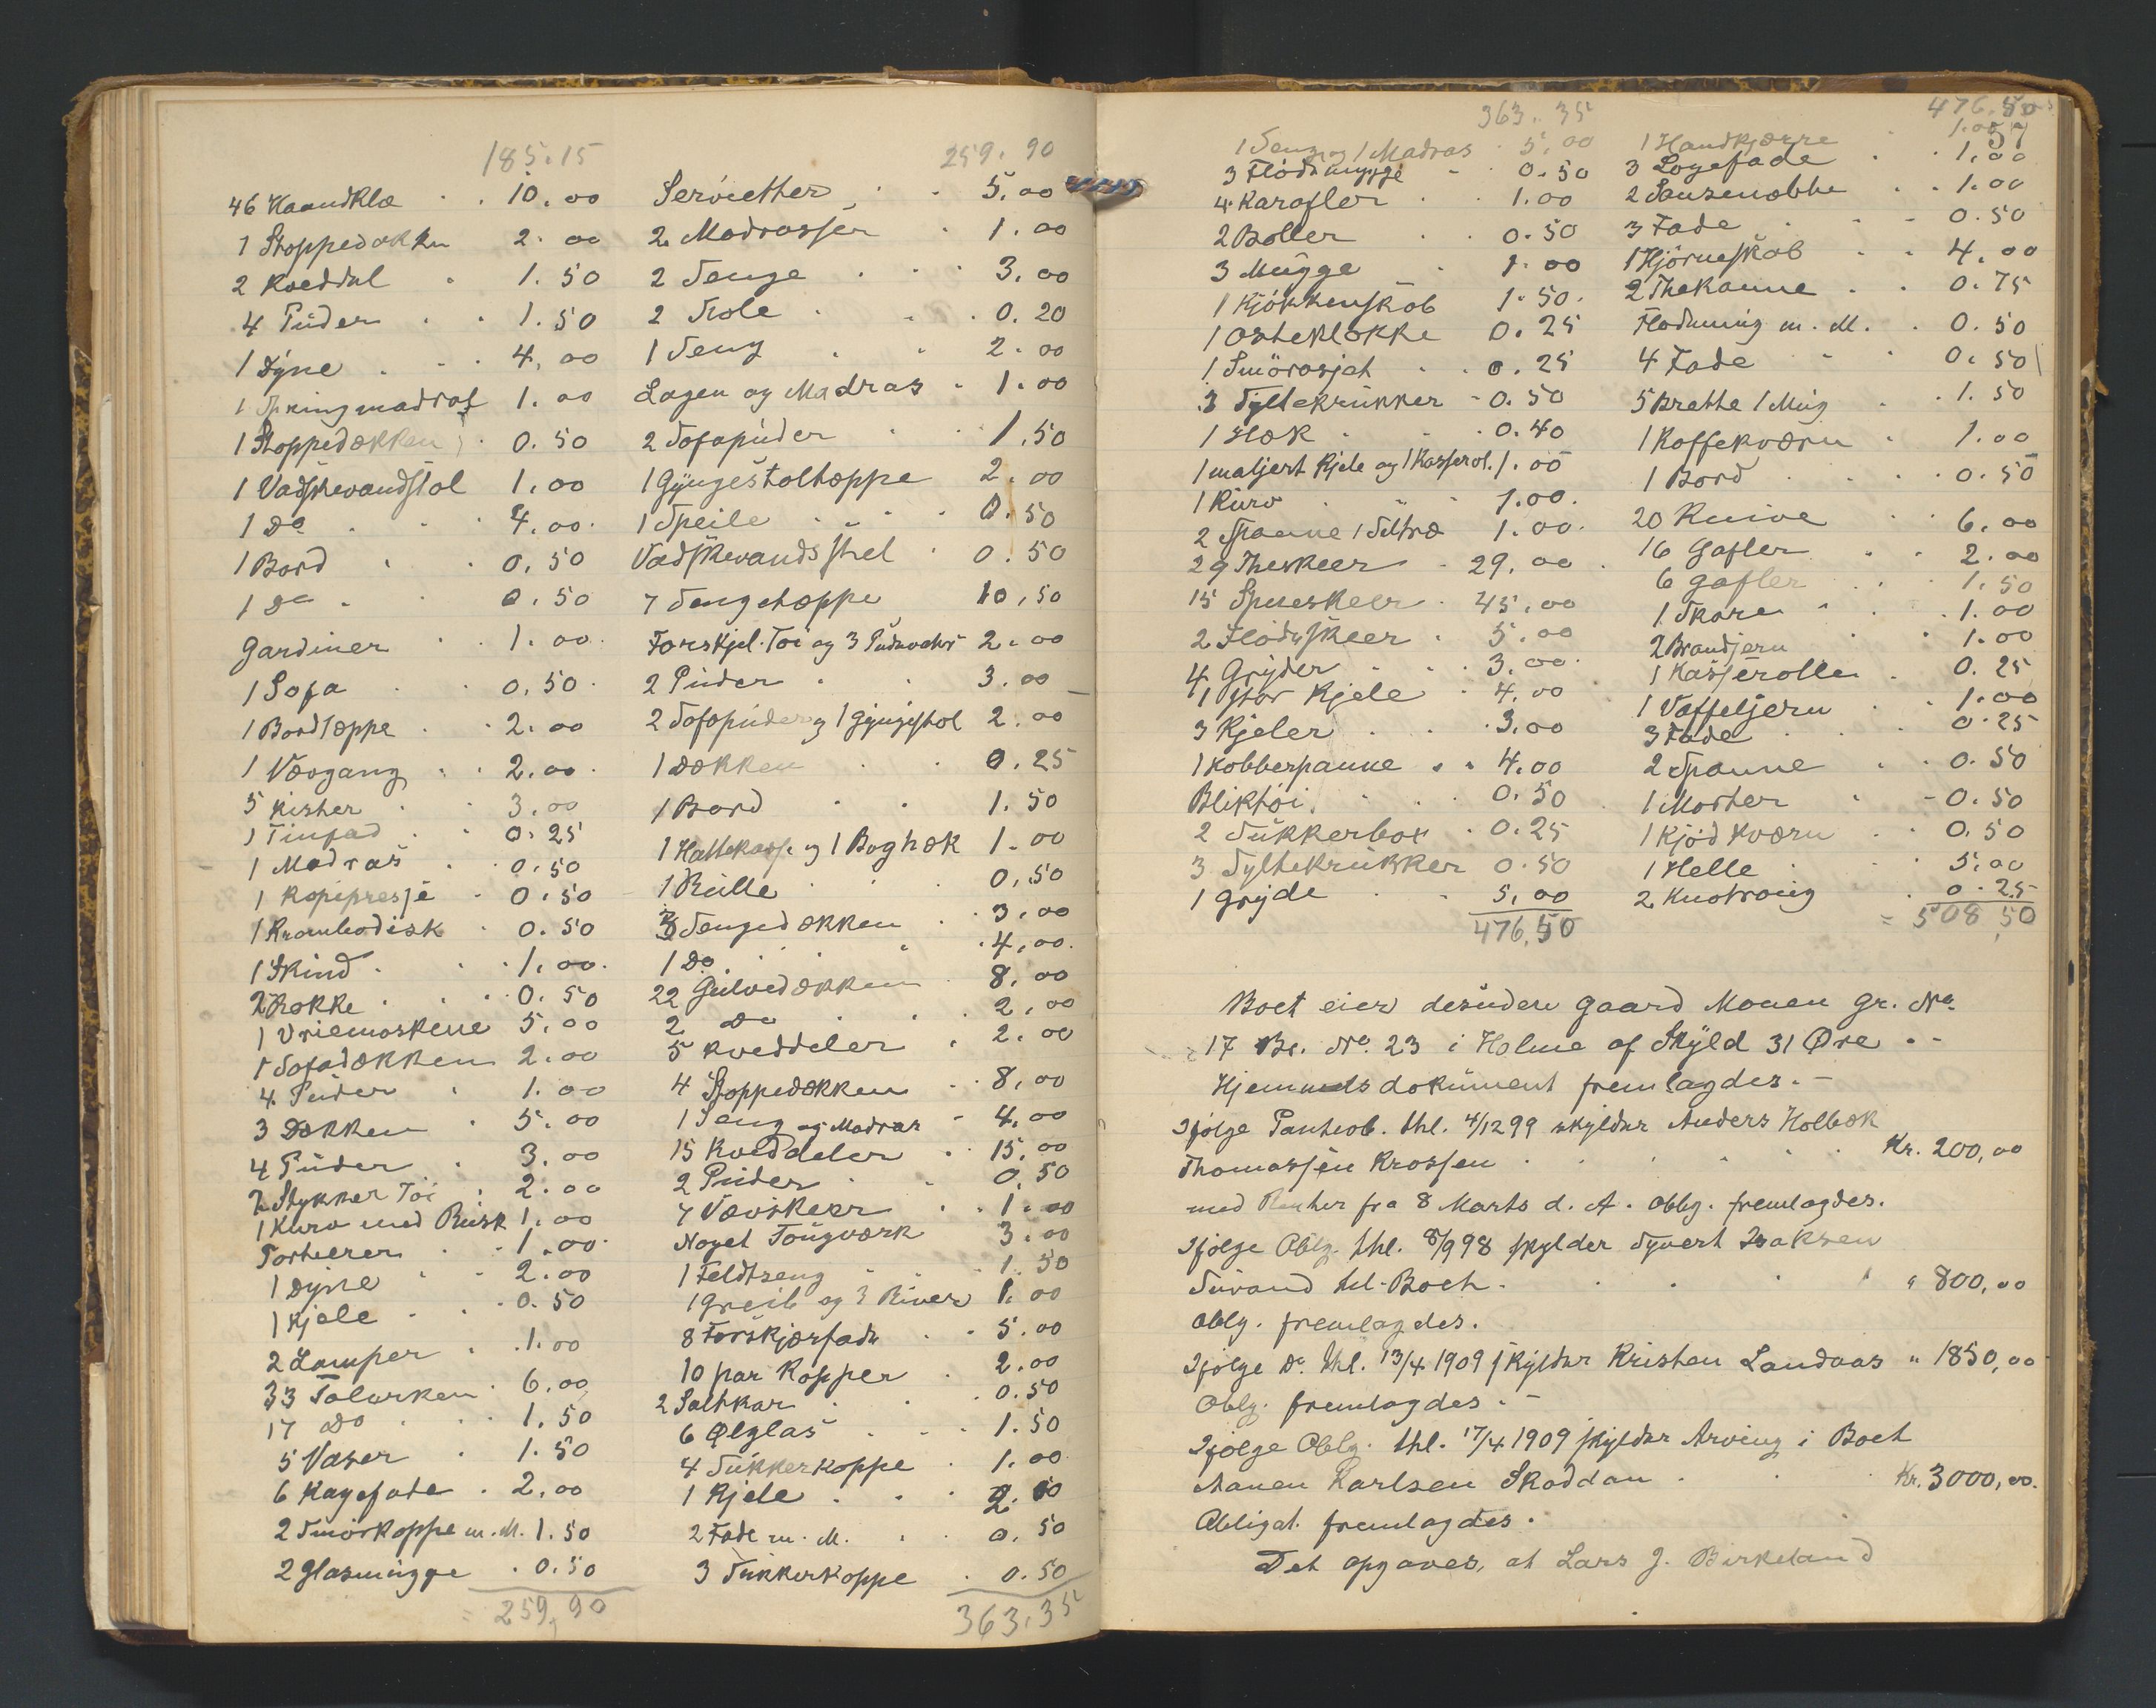 185.15
46 Haandklæ 10.00
1 Stoppedækken 2.00
2 Kveddel 1.50
4 Puder 1.50
1 Dyne 4.00
1 Springmadras 1.00
1 Stoppedækken 0.50
1 Vadskevandstol 1.00
1 Do 4.00
1 Bord 0.50
1 Do 0.50
Gardiner 1.00
1 Sofa 0.50
1 Bordtæppe 2.00
1 Vævgang 2.00
5 Kister 3.00
1 Tinfad 0.25
1 Madras 0.50
1 Kopipresse 0.50
1 Krambodisk 0.50
1 Skind 1.00
2 Rokke 0.50
1 Vriemaskine 5.00
1 Sofadækken 2.00
4 Puder 1.00
3 Dækken 5.00
4 Puder 3.00
2 Stykker Töi 2.00
1 Kurv med Rusk 1.00
Portierer 1.00
1 Dyne 2.00
1 Kjele 0.50
2 Lamper 1.00
33 Talerken 6.00
17 Do 1.50
5 Vaser 1.50
6 Kagefade 2.00
2 Smörkoppe m. M. 1.50
2 Glasmugge 0.50
= 259,90
259.90
Servietter 5.00
2 Madrasser 1.00
2 Senge 3.00
2 Stole 0.20
1 Seng 2.00
Lagen og Madras 1.00
2 Sofapuder 1.50
1 Gyngestoltæppe 2.00
1 Speile 0.50
Vadskevandsstel 0.50
7 Sengetæppe 10,50
Forskjel. Töi og 3 Pudevahr 2.00
2 Puder 3.00
2 Sofapuder og 1 Gyngestol 2.00
1 Dækken 0.25
1 Bord 1.50
1 Hattekasse og 1 Boghæk 1.00
1 Rulle 0,50
3 Sengedækken 3.00
1 Do 4.00
22 Gulvedækken 8.00
2 Do 2.00
5 Kveddeler 2.00
4 Stoppedækken 8.00
1 Seng og Madras 4.00
15 Kveddeler 15.00
2 Puder 0,50
7 Vævskeer 1.00
Noget Tougværk 3.00
1 Feldtseng 1.50
1 Greib og 3 River 1.00
8 Forskjærfade 5.00
10 par Kopper 2.00
2 Saltkar 0.50
6 Ølglas 1.50
4 Sukkerkoppe 1.00
1 Kjele
2 Fade m. M. 0.50
3 Sukkerkoppe 0.50
363.35
363.35
1 Seng og 1 Madras 5.00
3 Flödemugge 0.50
4 Karafler 1.00
2 Boller 0.50
3 Mugge 1.00
1 Kjökkenskab 1.50
1 Osteklokke 0.25
1 Smörasjet 0.25
3 Syltekrukker 0.50
1 Hæk 0.40
1 maljert Kjele og 1 Kasserol. 1.00
1 Kurv 1.00
2 Spanne 1 Siltræ 1.00
29 Theskeer 29.00
15 Spiseskeer 45.00
2 Flödeskeer 5.00
4 Gryder 3.00
1 stor Kjele 4.00
3 Kjeler 3.00
1 Kobberpanne 4.00
Bliktöi 0.50
2 Sukkerbox 0.25
3 Syltekrukker 0.50
1 Gryde 5.00
476,50
476.50
57
1 Handkjærre 1.00
3 Logefade 1.00
2 Sausenæbbe 1.00
3 Fade 0.50
1 Hjörneskab 4.00
2 Thekanne 0.75
Flodmug m. M. 0.50
4 Fade 0.50
5 Brette 1 Mug 1.50
1 Kaffekværn 1.00
1 Bord 0.50
20 Knive 6.00
16 Gafler 2.00
6 Gafler 1.50
1 Skare 1.00
2 Brandjern 1.00
1 Kasserolle 0.25
1 Vaffeljern 1.00
3 Fade 0.25
2 Spanne 0.50
1 Morter 0.50
1 Kjödkværn 0.50
1 Helle 5.00
2 0.25
= 508,50
Boet eier desuden Gaard Monen Gr. No.
17 Br. No. 23 i Holme af Skyld 31 Øre.-
Hjemmelsdokument fremlagdes.-
Ifölge Panteob. thl. 4/12 99 skylder Anders Holbæk
Thomassen Krossen Kr. 200,00
med Renter fra 8 Marts d. A. Oblg. fremlagdes.
Ifölge Oblg. thl. 8/9 98 skylder Syvert Isaksen
Suvand til Boet " 800,00
Oblg. fremlagdes.
Ifölge Do. thl. 13/4 1909 skylder Kristen Landaas " 1850,00
Oblg. fremlagdes.-
Ifölge Oblg. thl. 17/4 1909 skylder Arving i Boet
Aanen Karlsen Skoddan Kr. 3000,00.
Obligat. fremlagdes.
Det opgaves, at Lars J. Birkeland